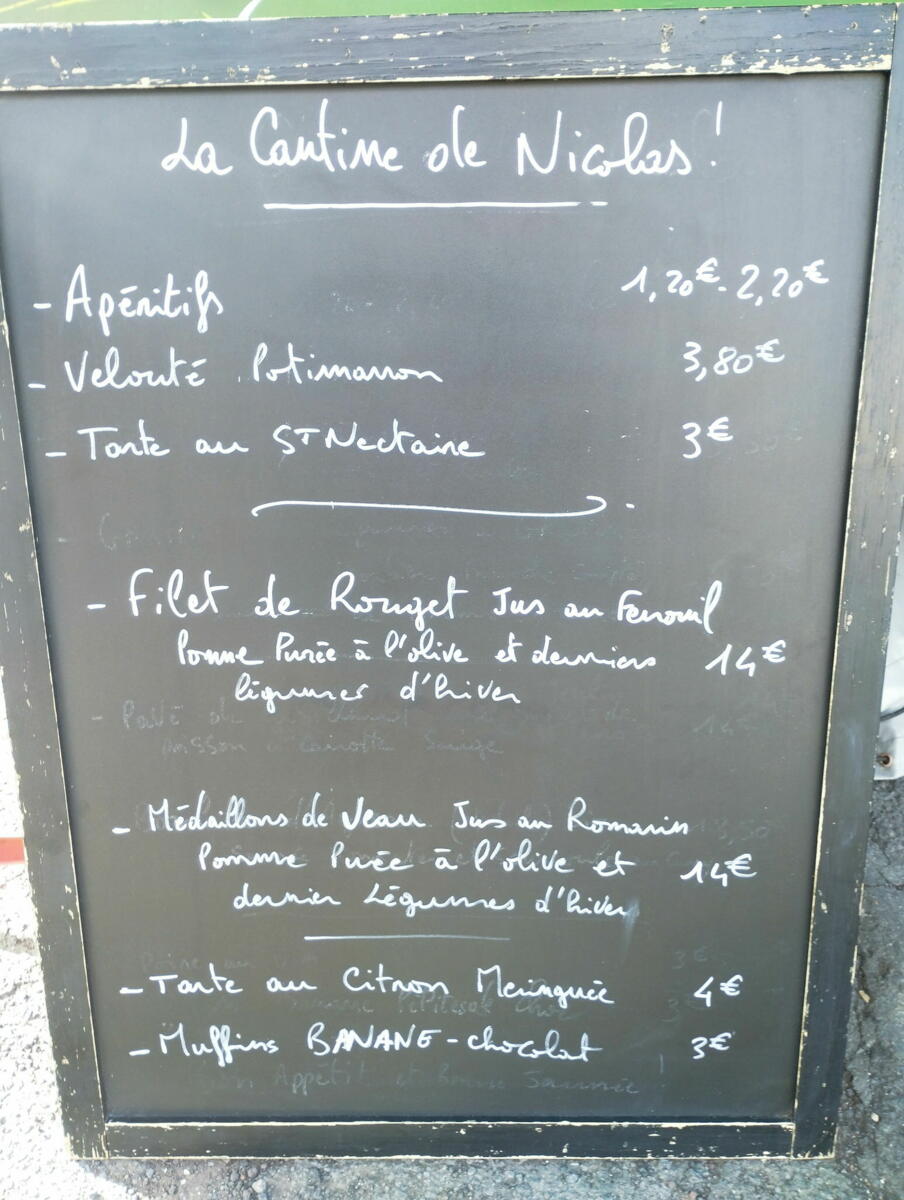 La Cantine de Nicolas !
- Apéritifs 1,20€ - 2,20€
- Velouté Potimarron 3,80€
- Tarte au ST Nectaire 3€
- Filet de Rouget Jus au Fenouil
Pomme Purée à l'olive et derniers 14€
légumes d'hiver
- Médaillons de Veau Jus au Romarin
Pomme Purée à l'olive et 14€
dernier Légumes d'hiver
- Tarte au Citron Meringuée 4€
- Muffins BANANE - chocolat 3€